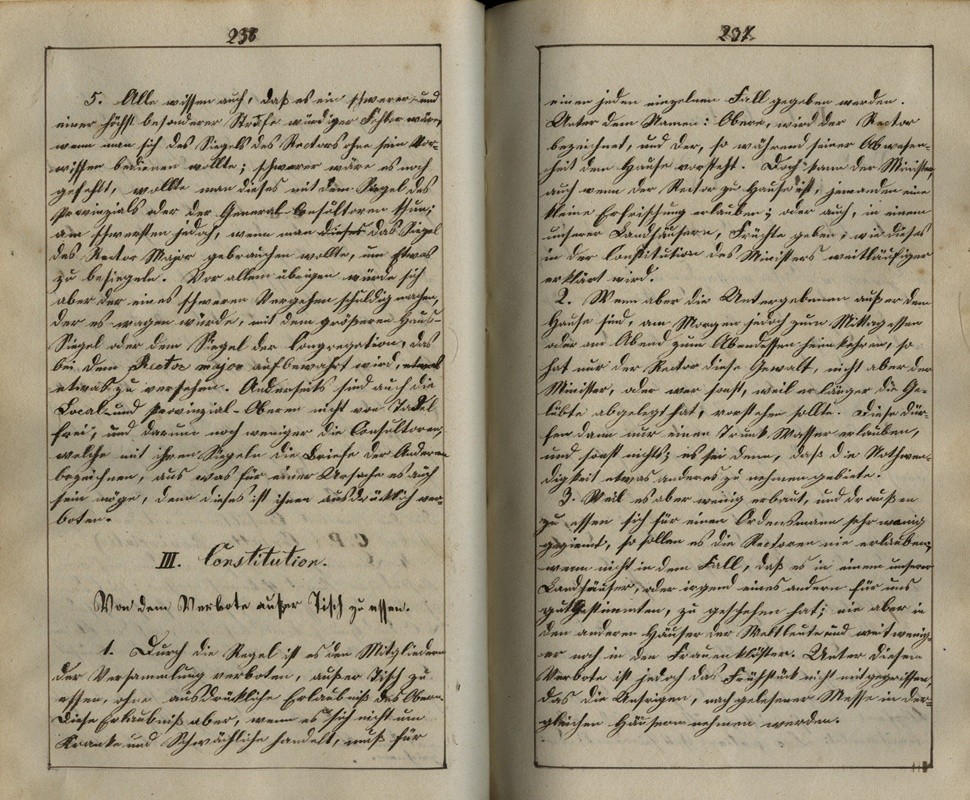 236
5. Alle wissen auch, daß es ein schwerer und
einer höchst besonderer Strafe würdiger Fehler wäre,
wenn man sich des Siegels des Rectors ohne sein Vor-
wissen bedienen wollte; schwerer wäre es noch
gefehlt, wollte man dieses mit dem Siegel des
Provinzials oder der General-Consultoren thun;
am schwersten jedoch, wenn man das Siegel
des Rector Major gebrauchen wollte, um etwas
zu besiegeln. Vor allem übrigen würde sich
aber der eines schweren Vergehen schuldig machen,
der es wagen würde, mit dem größeren Haus-
Siegel oder dem Siegel der Congregation, das
bei dem Rector major aufbewahrt wird,
etwas zu versehen. Anderseits sind auch die
Local- und Provinzial-Oberen nicht von Tadel
frei, und darum noch weniger die Consultoren,
welche mit ihren Siegeln die Briefe der Anderen
bezeichnen, aus was für einer Ursache es auch
sein möge, denn dieses ist ihnen ausdrücklich ver-
boten.
III. Constitution.
Von dem Verbote außer Tisch zu essen.
1. Durch die Regel ist es den Mitgliedern
der Versammlung verboten, außer Tisch zu
essen, ohne ausdrückliche Erlaubniß des Obern.
Diese Erlaubniß aber, wenn es sich nicht um
Kranke und Schwächliche handelt, muß für
237
einen jeden einzelnen Fall gegeben werden.
Unter dem Namen: Obere, wird der Rector
bezeichnet, und der, so während seiner Abwesen-
heit dem Hause vorsteht. Doch kann der Minister,
auch wenn der Rector zu Hause ist, jemanden eine
kleine Erfrischung erlauben; oder auch, in einem
unserer Landhäusern, Früchte geben; wie dieses
in der Constitution des Ministers weitläufiger
erklärt wird.
2. Wenn aber die Untergebenen außer dem
Hause sind, am Morgen jedoch zum Mittagessen
oder am Abend zum Abendessen heimkehren, so
hat nur der Rector diese Gewalt, nicht aber der
Minister, oder wer sonst, weil er länger die Ge-
lübte abgelegt hat, vorstehen sollte. Diese dür-
fen dann nur einen Trunk Wasser erlauben,
und sonst nichts; es sei denn, daß die Nothwen-
digkeit etwas anderes zu nehmen gebiete.
3. Weil es aber wenig erbaut, und draußen
zu essen sich für einen Ordensmann sehr wenig
geziemt, so sollen es die Rectoren nie erlauben,
wenn nicht in dem Fall, daß es in einem unserer
Landhäuser, oder irgend eines andern für uns
gutgestimmten, zu geschehen hat; nie aber in
den anderen Häuser der Weltleute und weit wenig-
er noch in den Frauenklöster. Unter diesem
Verbote ist jedoch das Frühstück nicht mitgegriffen,
das die Unsrigen, nach gelesener Messe in der-
gleichen Häusern nehmen werden.